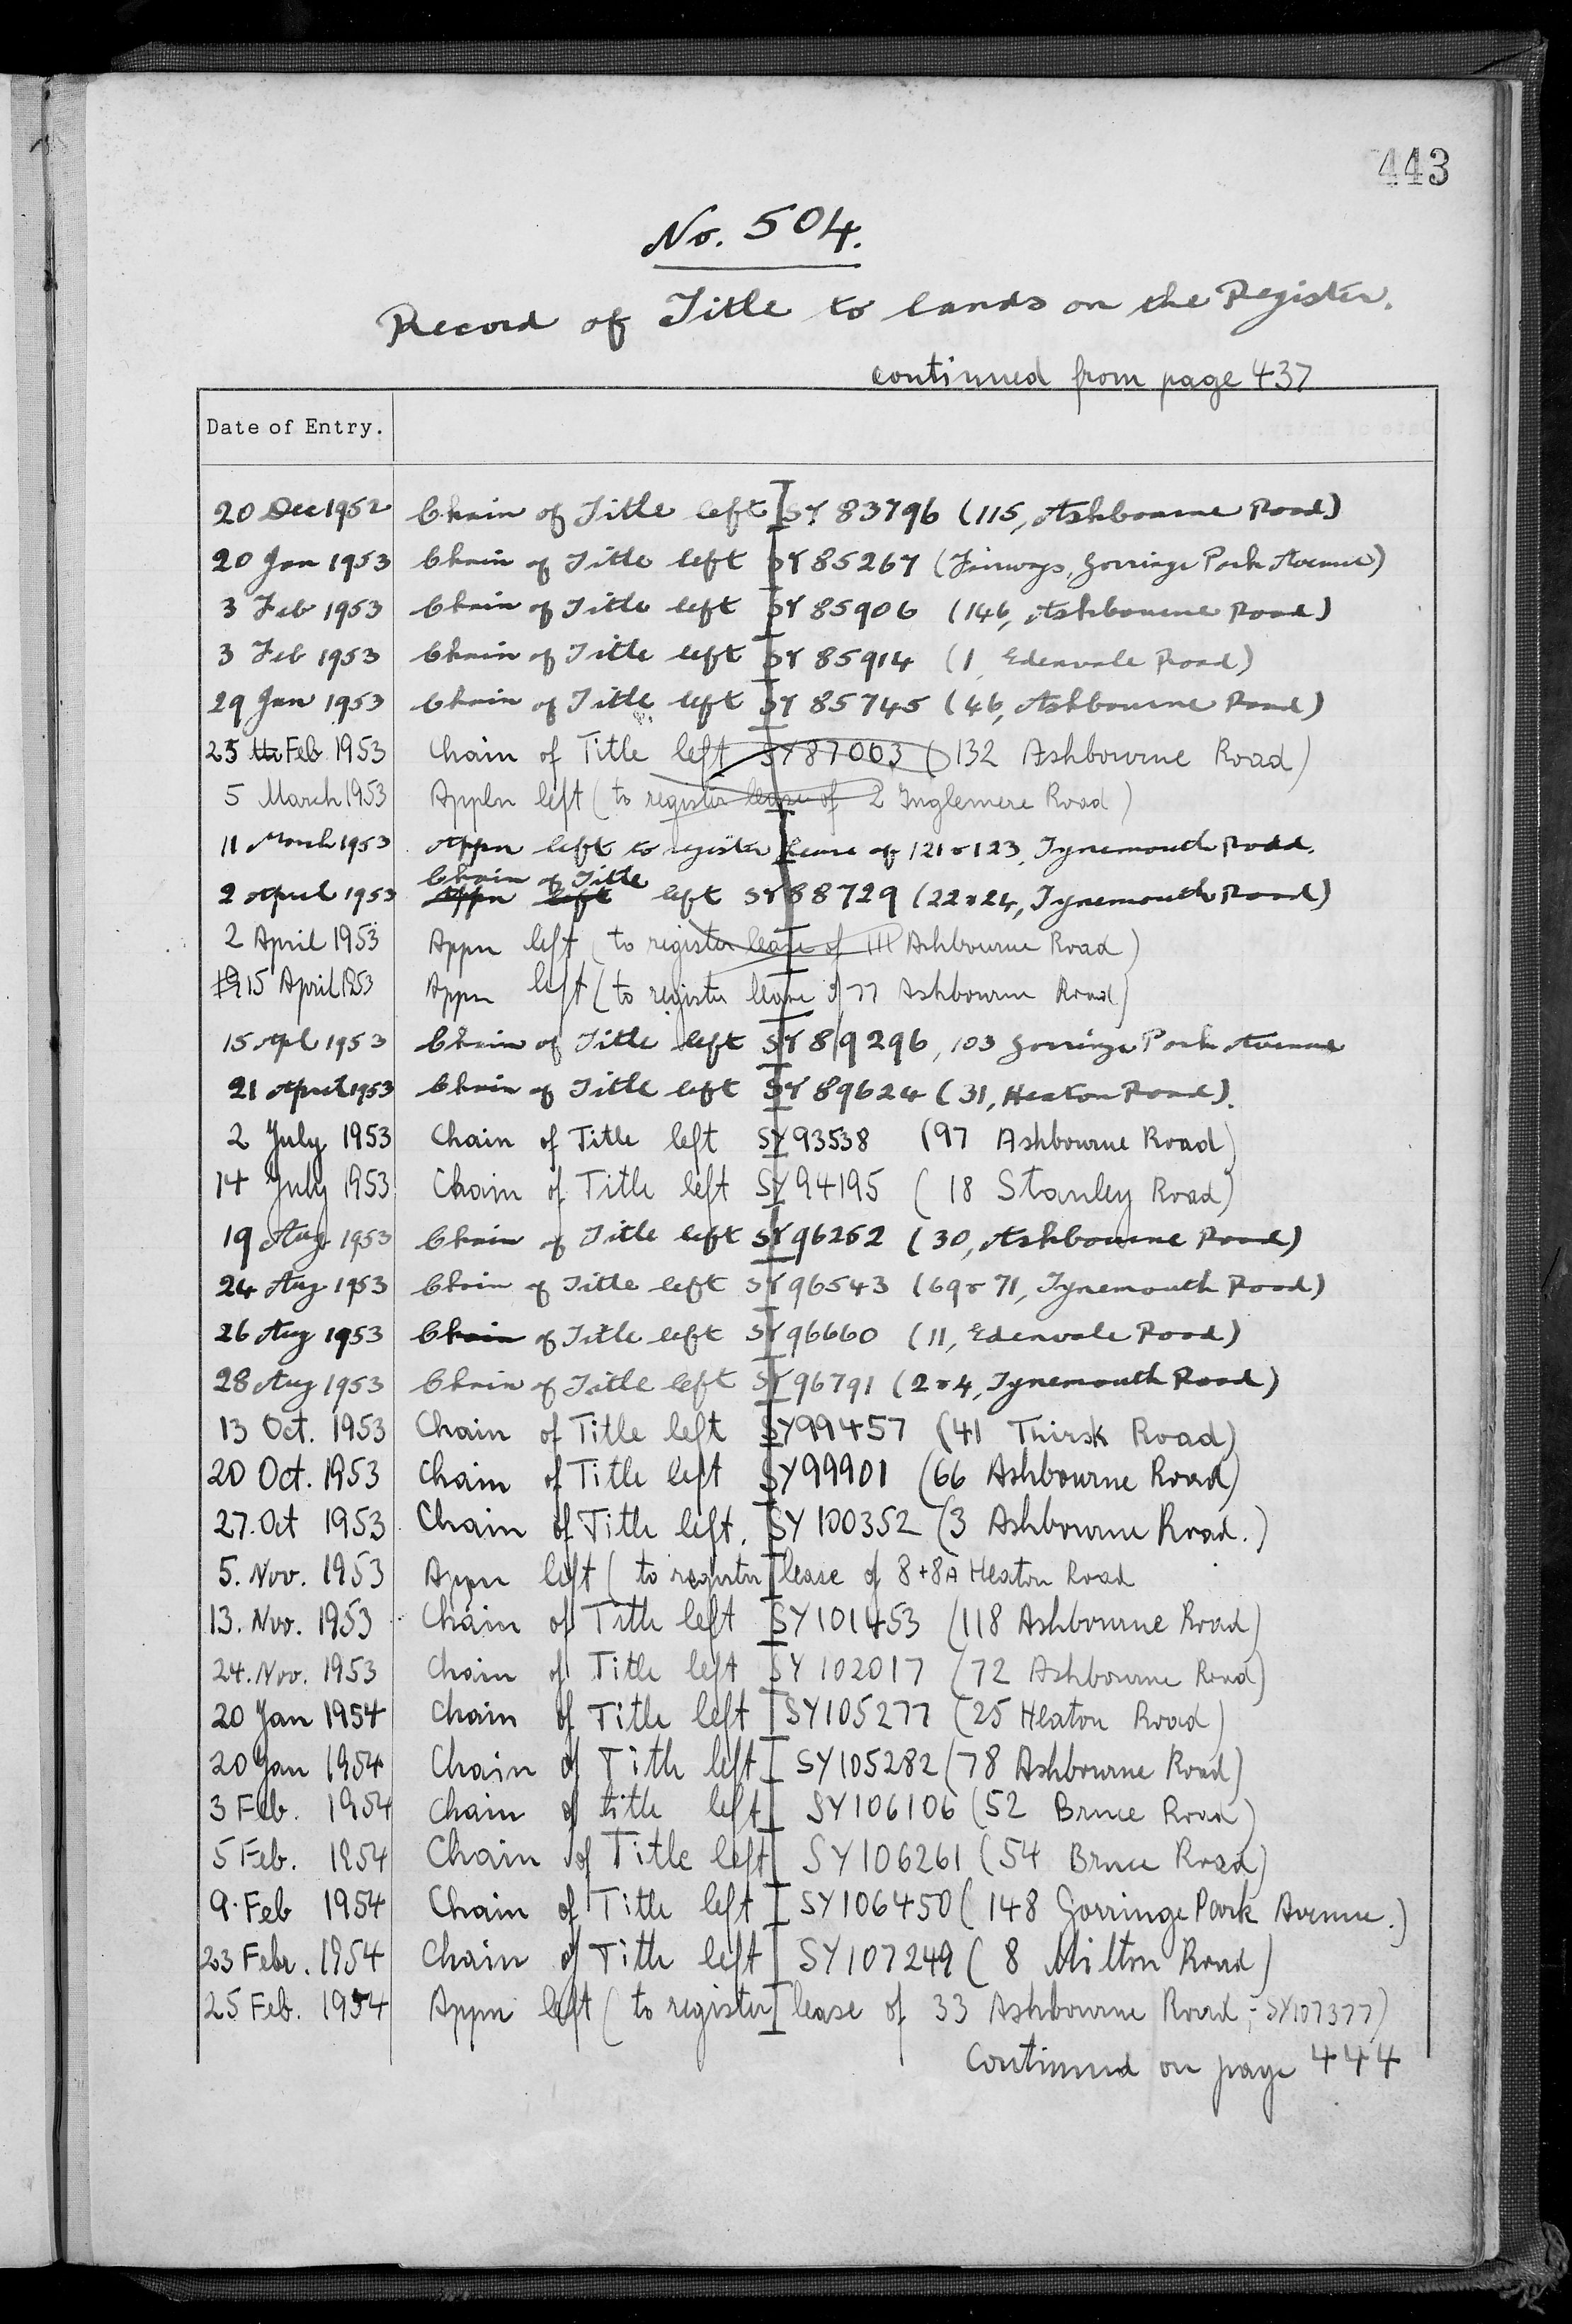 443
No. 504.
Record of Title to lands on the Register.
continued from page 437
Date of Entry.
20 Dec 1952 Chain of Title left SY 83796 (115, Ashbourne Road)
20 Jan 1953 Chain of Title left SY 85267 (Fairways, Gorringe Park Avenue)
3 Feb 1953 Chain of Title left SY 85906 (146, Ashbourne Road)
3 Feb 1953 Chain of Title left SY 85914 (1, Edenvale Road)
29 Jan 1953 Chain of Title left SY 85745 (46, Ashbourne Road)
25 th Feb 1953 Chain of Title left SY87003 (132 Ashbourne Road)
5 March 1953 Appln left (to register lease of 2 Inglemere Road)
11 March 1953 Appn left to register lease of 121 & 123, Tynemouth Road.
Chain of Title
2 April 1953 Appn left left SY88729 (22 & 24, Tynemouth Road)
2 April 1953 Appn left (to register lease of 111 Ashbourne Road)
19 15 April 1953 Appn left (to register lease of 77 Ashbourne Road)
15 Apl 1953 Chain of Title left SY 89296, 103 Gorringe Park Avenue
21 April 1953 Chain of Title left SY 89624 (31, Heaton Road).
2 July 1953 Chain of Title left SY93538 (97 Ashbourne Road)
14 July 1953 Chain of Title left SY94195 (18 Stanley Road)
19 Aug 1953 Chain of Title left SY96252 (30, Ashbourne Road)
24 Aug 1953 Chain of Title left SY96543 (69 & 71, Tynemouth Road)
26 Aug 1953 Chain of Title left SY96660 (11, Edenvale Road)
28 Aug 1953 Chain of Title left SY96791 (2 & 4, Tynemouth Road)
13 Oct. 1953 Chain of Title left SY99457 (41 Thirsk Road)
20 Oct. 1953 Chain of Title left SY99901 (66 Ashbourne Road)
27. Oct 1953 Chain of Title left. SY 100352 (3 Ashbourne Road.)
5. Nov. 1953 Appn left (to register lease of 8+8A Heaton Road
13. Nov. 1953 Chain of Title left SY101453 (118 Ashbourne Road)
24. Nov. 1953 Chain of Title left SY 102017 (72 Ashbourne Road)
20 Jan 1954 Chain of Title left SY105277 (25 Heaton Road)
20 Jan 1954 Chain of Title left SY105282 (78 Ashbourne Road)
3 Feb. 1954 Chain of title left SY106106 (52 Bruce Road)
5 Feb. 1954 Chain of Title left SY106261 (54 Bruce Road)
9. Feb 1954 Chain of Title left SY106450 (148 Gorringe Park Avenue.)
23 Febr. 1954 Chain of Title left SY107249 (8 Milton Road)
25 Feb. 1954 Appn left (to register lease of 33 Ashbourne Road; SY107377)
Continued on page 444